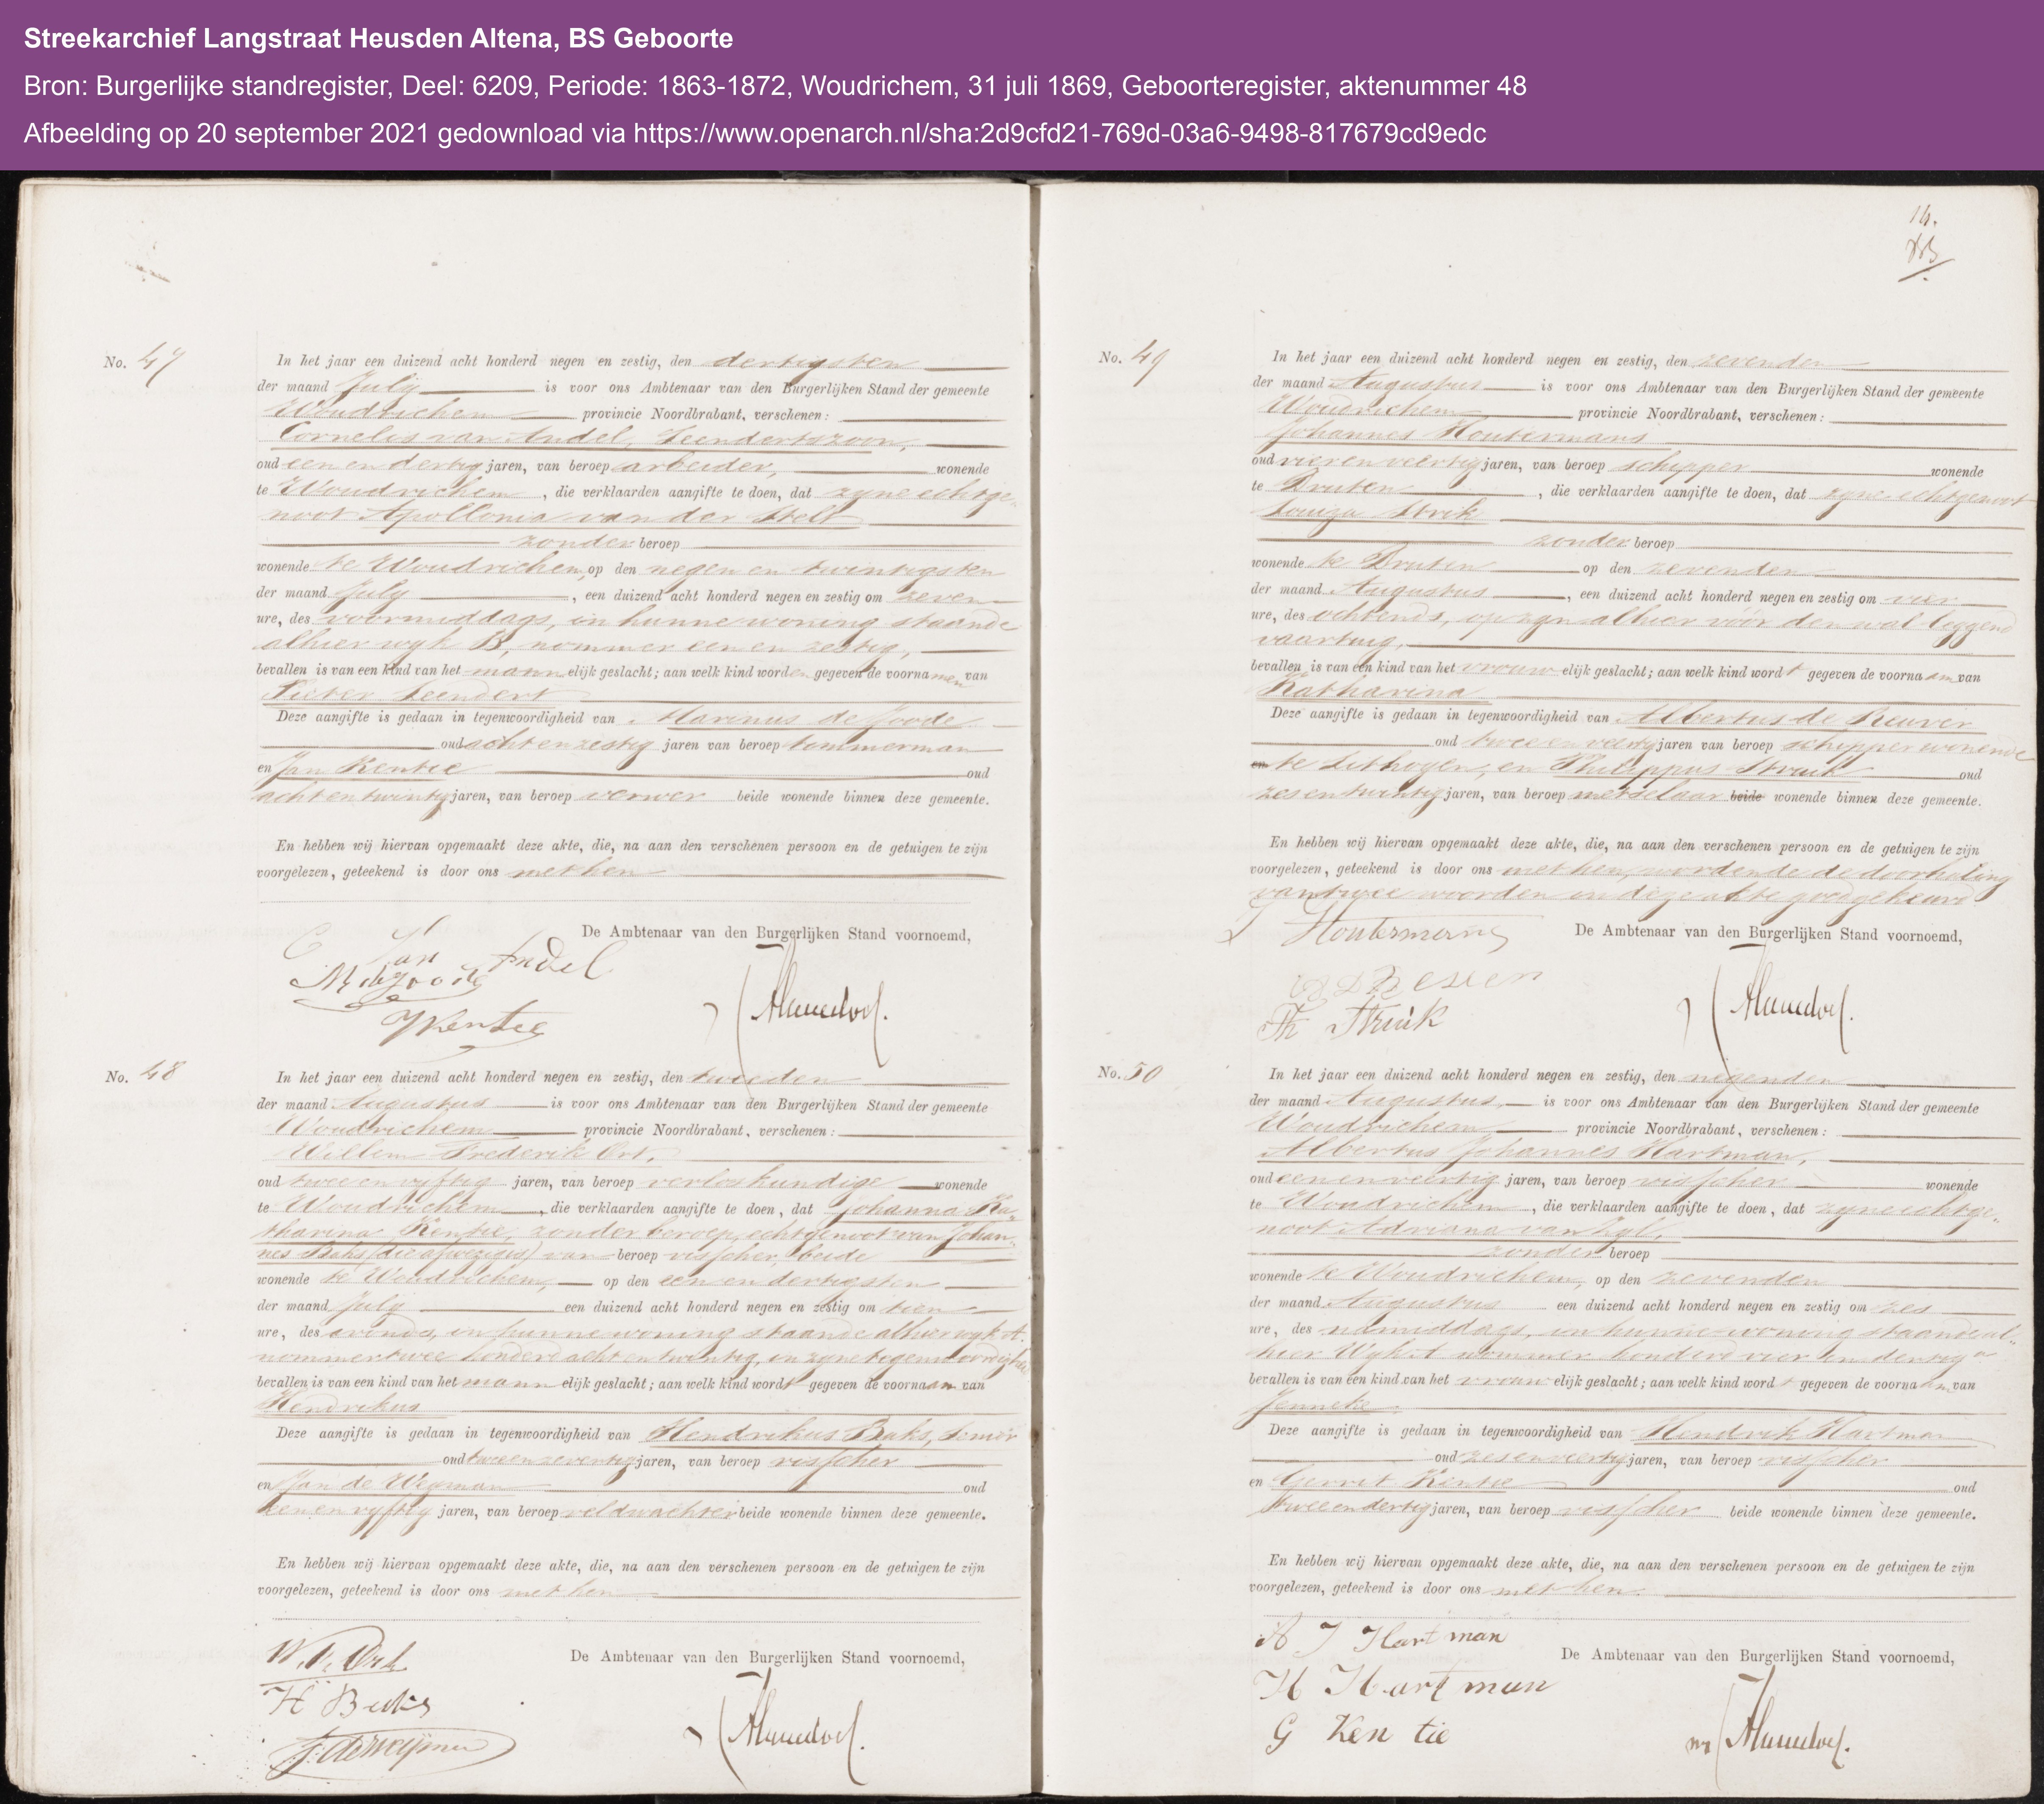 Streekarchief Langstraat Heusden Altena, BS Geboorte
Bron: Burgerlijke standregister, Deel: 6209, Periode: 1863-1872, Woudrichem, 31 juli 1869, Geboorteregister, aktenummer 48
Afbeelding op 20 september 2021 gedownload via https://www.openarch.nl/sha:2d9cfd21-769d-03a6-9498-817679cd9edc
No. 47
In het jaar een duizend acht honderd negen en zestig, den dertigsten
der maand July is voor ons Ambtenaar van den Burgerlijken Stand der gemeente
Woudrichem provincie Noordbrabant, verschenen:
Cornelis van Andel, Leendertszoon,
oud een en dertig jaren, van beroep arbeider, wonende
te Woudrichem, die verklaarden aangifte te doen, dat zyne echtge-
noot Apollonia van der Stelt
zonder beroep
wonende te Woudrichem, op den negen en twintigsten
der maand July, een duizend acht honderd negen en zestig om zeven
ure, des voormiddags, in hunne woning staande
alhier wyk B, nommer een en zestig,
bevallen is van een kind van het mannelijk geslacht; aan welk kind worden gegeven de voornamen van
Pieter Leendert
Deze aangifte is gedaan in tegenwoordigheid van Marinus de Joode
oud acht en zestig jaren van beroep timmerman
en Jan Kentie oud
acht en twintig jaren, van beroep verwer beide wonende binnen deze gemeente.
En hebben wij hiervan opgemaakt deze akte, die, na aan den verschenen persoon en de getuigen te zijn
voorgelezen, geteekend is door ons met hen
De Ambtenaar van den Burgerlijken Stand voornoemd,
C van Andel
M de Joode
J Kentie
No. 48
In het jaar een duizend acht honderd negen en zestig, den tweeden
der maand Augustus is voor ons Ambtenaar van den Burgerlijken Stand der gemeente
Woudrichem provincie Noordbrabant, verschenen:
Willem Frederik Ort,
oud twee en vyftig jaren, van beroep verloskundige wonende
te Woudrichem, die verklaarden aangifte te doen, dat Johanna Ka-
tharina Kentie, zonder beroep, echtgenoot van Johan-
nes Baks (die afwezig is) van beroep visscher, beide
wonende te Woudrichem, op den een en dertigsten
der maand July een duizend acht honderd negen en zestig om tien
ure, des avonds, in hunne woning staande alhier wyk A.
nommer twee honderd acht en twintig, in zyne tegenwoordigheid
bevallen is van een kind van het mannelijk geslacht; aan welk kind wordt gegeven de voornaam van
Hendrikus
Deze aangifte is gedaan in tegenwoordigheid van Hendrikus Baks, Senior
oud twee en zeventig jaren, van beroep visscher
en Jan de Weyman oud
een en vyftig jaren, van beroep veldwachter beide wonende binnen deze gemeente.
En hebben wij hiervan opgemaakt deze akte, die, na aan den verschenen persoon en de getuigen te zijn
voorgelezen, geteekend is door ons met hen
De Ambtenaar van den Burgerlijken Stand voornoemd,
W. F. Ort
H Baks
J. de Weijman
14.
No. 49
In het jaar een duizend acht honderd negen en zestig, den zevenden
der maand Augustus is voor ons Ambtenaar van den Burgerlijken Stand der gemeente
Woudrichem provincie Noordbrabant, verschenen:
Johannes Houtermans
oud vier en veertig jaren, van beroep schipper wonende
te Druten, die verklaarden aangifte te doen, dat zyne echtgenoot
Louiza Strik
zonder beroep
wonende te Druten op den zevenden
der maand Augustus, een duizend acht honderd negen en zestig om vier
ure, des ochtends, op zyn alhier vóór den wal leggend
vaartuig,
bevallen is van een kind van het vrouwelijk geslacht; aan welk kind wordt gegeven de voornaam van
Katharina
Deze aangifte is gedaan in tegenwoordigheid van Albertus de Reuver
oud twee en veertig jaren van beroep schipper wonende
en te Lithoyen, en Philippus Struik oud
zes en twintig jaren, van beroep metselaar beide wonende binnen deze gemeente.
En hebben wij hiervan opgemaakt deze akte, die, na aan den verschenen persoon en de getuigen te zijn
voorgelezen, geteekend is door ons met hen, wordende de doorhaling
van twee woorden in deze akte goedgekeurd
De Ambtenaar van den Burgerlijken Stand voornoemd,
Ph Struik
No. 50
In het jaar een duizend acht honderd negen en zestig, den negenden
der maand Augustus, is voor ons Ambtenaar van den Burgerlijken Stand der gemeente
Woudrichem provincie Noordbrabant, verschenen:
Albertus Johannes Hartman,
oud een en veertig jaren, van beroep visscher wonende
te Woudrichem, die verklaarden aangifte te doen, dat zyne echtge-
noot Adriana van Zyl,
zonder beroep
wonende te Woudrichem, op den zevenden
der maand Augustus een duizend acht honderd negen en zestig om zes
ure, des namiddags, in hunne woning staande al-
hier Wyk A nommer honderd vier en dertig
bevallen is van een kind van het vrouwelijk geslacht; aan welk kind wordt gegeven de voornaam van
Jenneke.
Deze aangifte is gedaan in tegenwoordigheid van Hendrik Hartman
oud zes en veertig jaren, van beroep visscher
en Gerrit Kentie oud
twee en dertig jaren, van beroep visscher beide wonende binnen deze gemeente.
En hebben wij hiervan opgemaakt deze akte, die, na aan den verschenen persoon en de getuigen te zijn
voorgelezen, geteekend is door ons met hen.
De Ambtenaar van den Burgerlijken Stand voornoemd,
A J Hartman
H Hartman
G Kentie